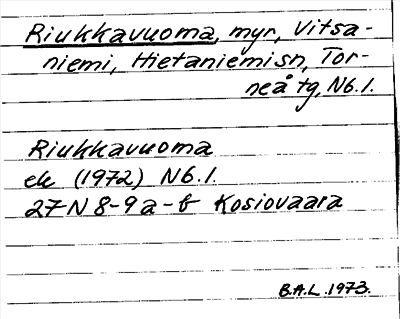 Riukkavuoma, myr, Vitsa-
niemi, Hietaniemi sn, Tor-
neå tg, Nb.l.
Riukkavuoma
ek (1972) Nb.l.
27N 8-9a-b Kosiovaara
B.A.L. 1973.